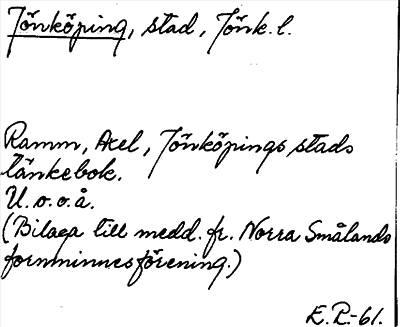 Jönköping, stad, Jönk. l.
Ramm, Axel, Jönköpings stads
tänkebok.
U.o.o.å.
(Bilaga till medd. fr. Norra Smålands
fornminnesförening.)
E.P.-61.